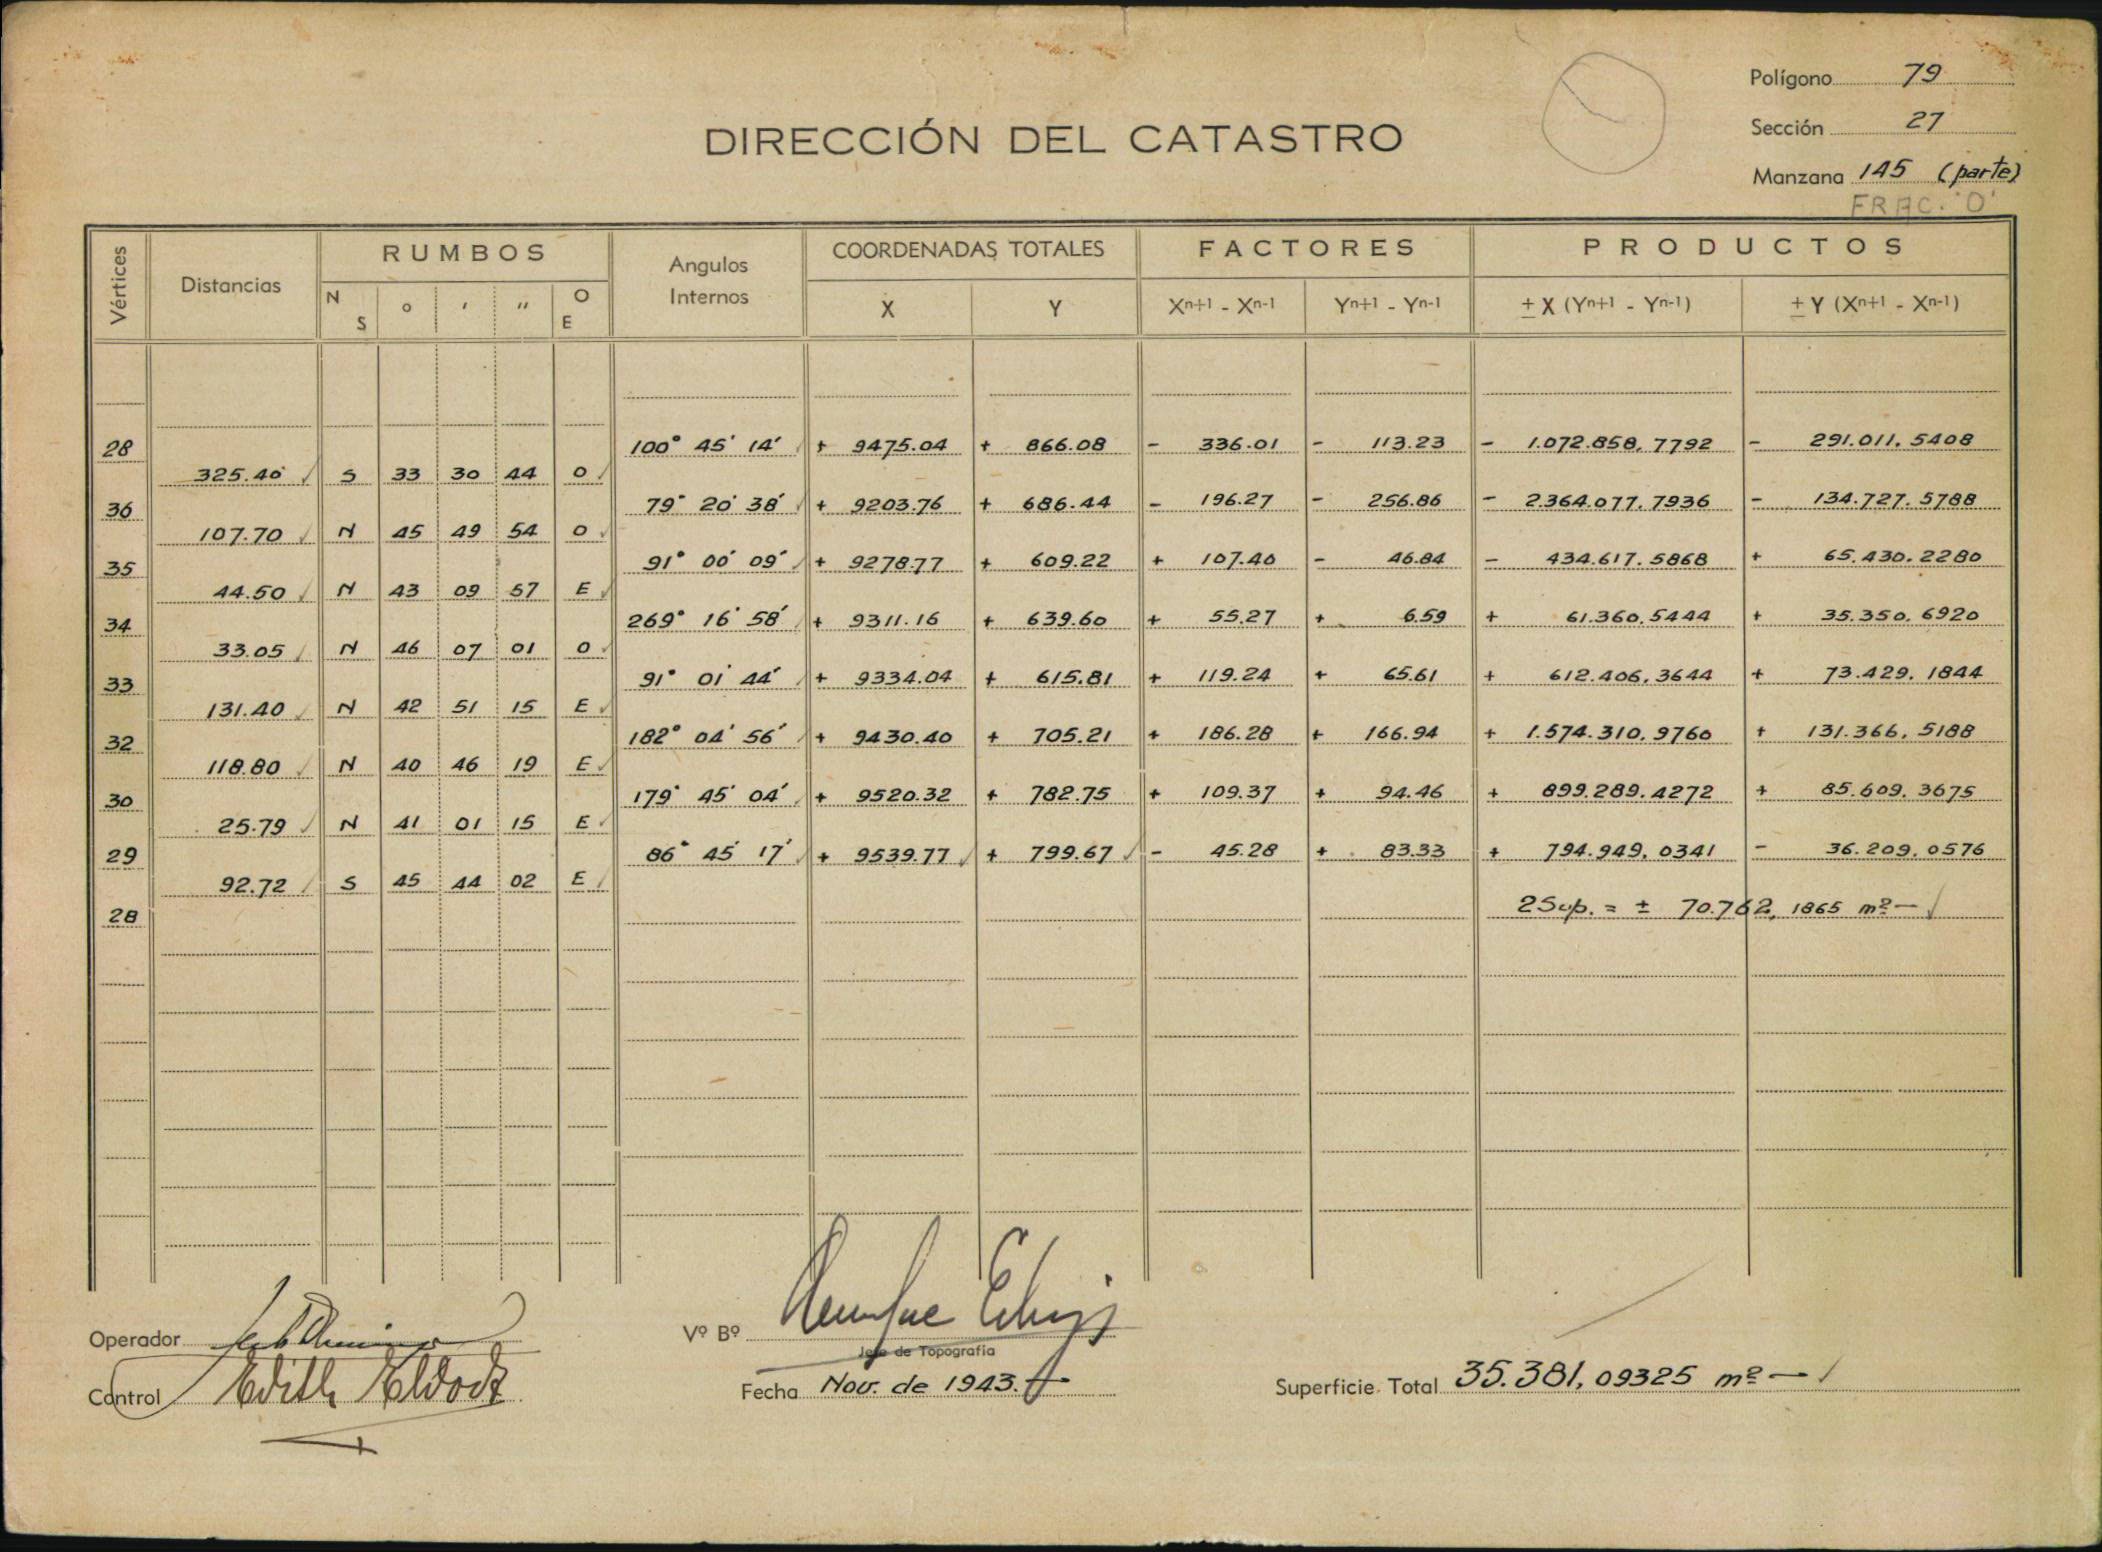 Polígono 79
DIRECCIÓN DEL CATASTRO
Sección 27
Manzana 145 (parte)
FRAC. "O"
Vértices Distancias RUMBOS Angulos Internos COORDENADAS TOTALES FACTORES PRODUCTOS
N S ° ' " O E X Y Xn+1 - Xn-1 Yn+1 - Yn-1 ± X (Yn+1 - Yn-1) ± Y (Xn+1 - Xn-1)
28 100° 45' 14' + 9475.04 + 866.08 - 336.01 - 113.23 - 1.072.858,7792 - 291.011,5408
325.40 S 33 30 44 O
36 79° 20' 38' + 9203.76 + 686.44 - 196.27 - 256.86 - 2.364.077,7936 - 134.727.5788
107.70 N 45 49 54 O
35 91° 00' 09' + 9278.77 + 609.22 + 107.40 - 46.84 - 434.617.5868 + 65.430.2280
44.50 N 43 09 57 E
34 269° 16' 58' + 9311.16 + 639.60 + 55.27 + 6.59 + 61.360,5444 + 35.350,6920
33.05 N 46 07 01 O
33 91° 01' 44' + 9334.04 + 615.81 + 119.24 + 65.61 + 612.406,3644 + 73.429,1844
131.40 N 42 51 15 E
32 182° 04' 56' + 9430.40 + 705.21 + 186.28 + 166.94 + 1.574.310,9760 + 131.366,5188
118.80 N 40 46 19 E
30 179° 45' 04' + 9520.32 + 782.75 + 109.37 + 94.46 + 899.289.4272 + 85.609.3675
25.79 N 41 01 15 E
29 86° 45' 17' + 9539.77 + 799.67 - 45.28 + 83.33 + 794.949,0341 - 36.209,0576
92.72 S 45 44 02 E
28 2Sup. = ± 70.762,1865 m²
Operador
Vº Bº
Jefe de Topografía
Control Edith
Fecha Nov. de 1943.
Superficie Total 35.381,09325 m²